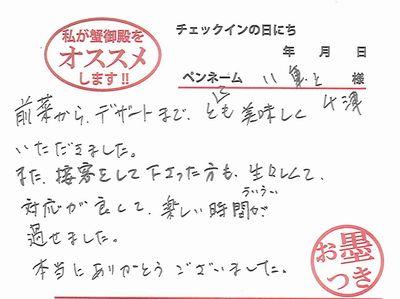 私が蟹御殿を
オススメ
します!!
チェックインの日にち
年 月 日
ペンネーム 様
前菜から、デザートまで、とても美味しく
いただきました。
また、接客をして下さった方も、生々しくて、
ういうい
対応が良くて、楽しい時間が
過せました。
本当にありがとうございました。
お墨
つき